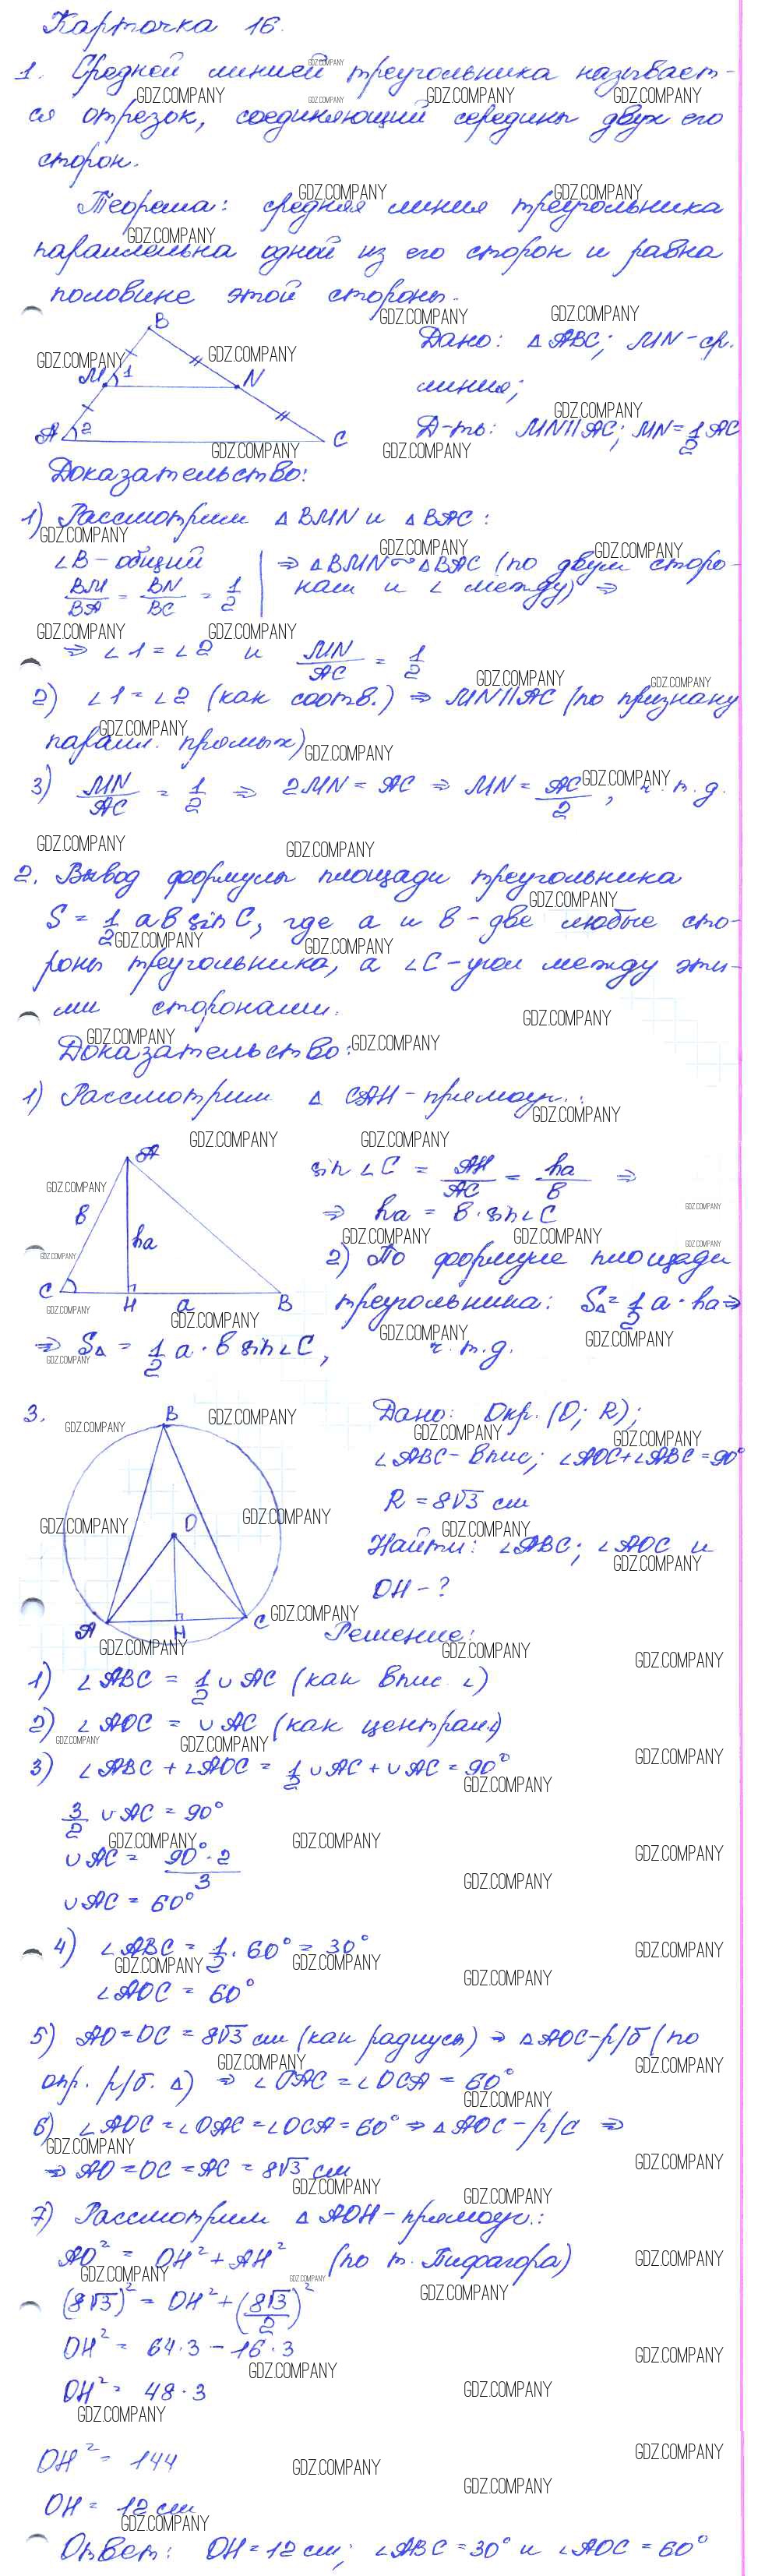 Карточка 16.
1. Средней линией треугольника называет-
ся отрезок, соединяющий середины двух его
сторон.
Теорема: средняя линия треугольника
параллельна одной из его сторон и равна
половине этой стороны.
B
M 1 N
A 2 C
Дано: △ABC; MN - ср.
линия;
Д-ть: MN||AC; MN = 1/2 AC
Доказательство:
1) Рассмотрим △BMN и △BAC:
∠B - общий
BM/BA = BN/BC = 1/2
⇒ △BMN ~ △BAC (по двум сторо-
нам и ∠ между) ⇒
⇒ ∠1 = ∠2 и MN/AC = 1/2
2) ∠1 = ∠2 (как соотв.) ⇒ MN||AC (по признаку
паралл. прямых)
3) MN/AC = 1/2 ⇒ 2MN = AC ⇒ MN = AC/2, ч.т.д.
2. Вывод формулы площади треугольника
S = 1/2 ab sin C, где a и b - две любые сто-
роны треугольника, а ∠C - угол между эти-
ми сторонами.
Доказательство:
1) Рассмотрим △ CAH - прямоуг.:
A
b
ha
C H a B
sin ∠C = AH/AC = ha/b ⇒
⇒ ha = b · sin∠C
2) По формуле площади
треугольника: S△ = 1/2 a · ha ⇒
⇒ S△ = 1/2 a · b sin∠C, ч.т.д.
3.
B
O
A H C
Дано: Окр. (O; R);
∠ABC - впис.; ∠AOC + ∠ABC = 90°
R = 8√3 см
Найти: ∠ABC; ∠AOC и
OH - ?
Решение:
1) ∠ABC = 1/2 ∪AC (как впис. ∠)
2) ∠AOC = ∪AC (как централ.)
3) ∠ABC + ∠AOC = 1/2 ∪AC + ∪AC = 90°
3/2 ∪AC = 90°
∪AC = 90° · 2/3
∪AC = 60°
4) ∠ABC = 1/2 · 60° = 30°
∠AOC = 60°
5) AO = OC = 8√3 см (как радиусы) ⇒ △AOC - р/б (по
опр. р/б. △) ⇒ ∠OAC = ∠OCA = 60°
6) ∠AOC = ∠OAC = ∠OCA = 60° ⇒ △AOC - р/с ⇒
⇒ AO = OC = AC = 8√3 см
7) Рассмотрим △ AOH - прямоуг.:
AO² = OH² + AH² (по т. Пифагора)
(8√3)² = OH² + (8√3/2)²
OH² = 64·3 - 16·3
OH² = 48·3
OH² = 144
OH = 12 см
Ответ: OH = 12 см; ∠ABC = 30° и ∠AOC = 60°
GDZ.COMPANY